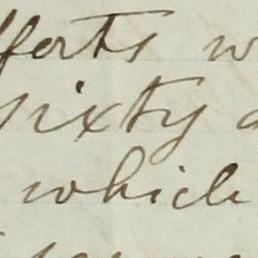 fforts w
sixty a
which